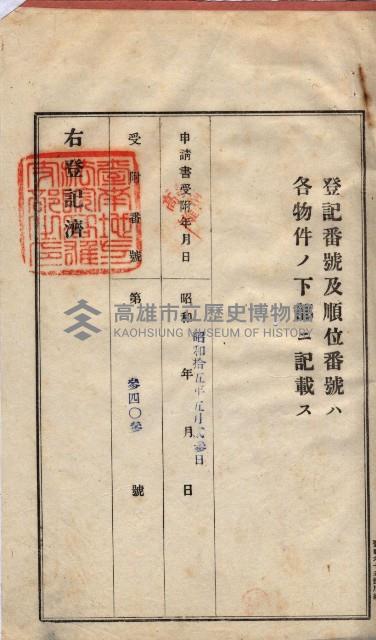 登記番號及順位番號ハ
各物件ノ下部ニ記載ス
申請書受附年月日
昭和 年 月 日
昭和拾五年五月弍參日
受附番號
第 號
參四〇參
右登記濟
高雄市立歷史博物館
KAOHSIUNG MUSEUM OF HISTORY